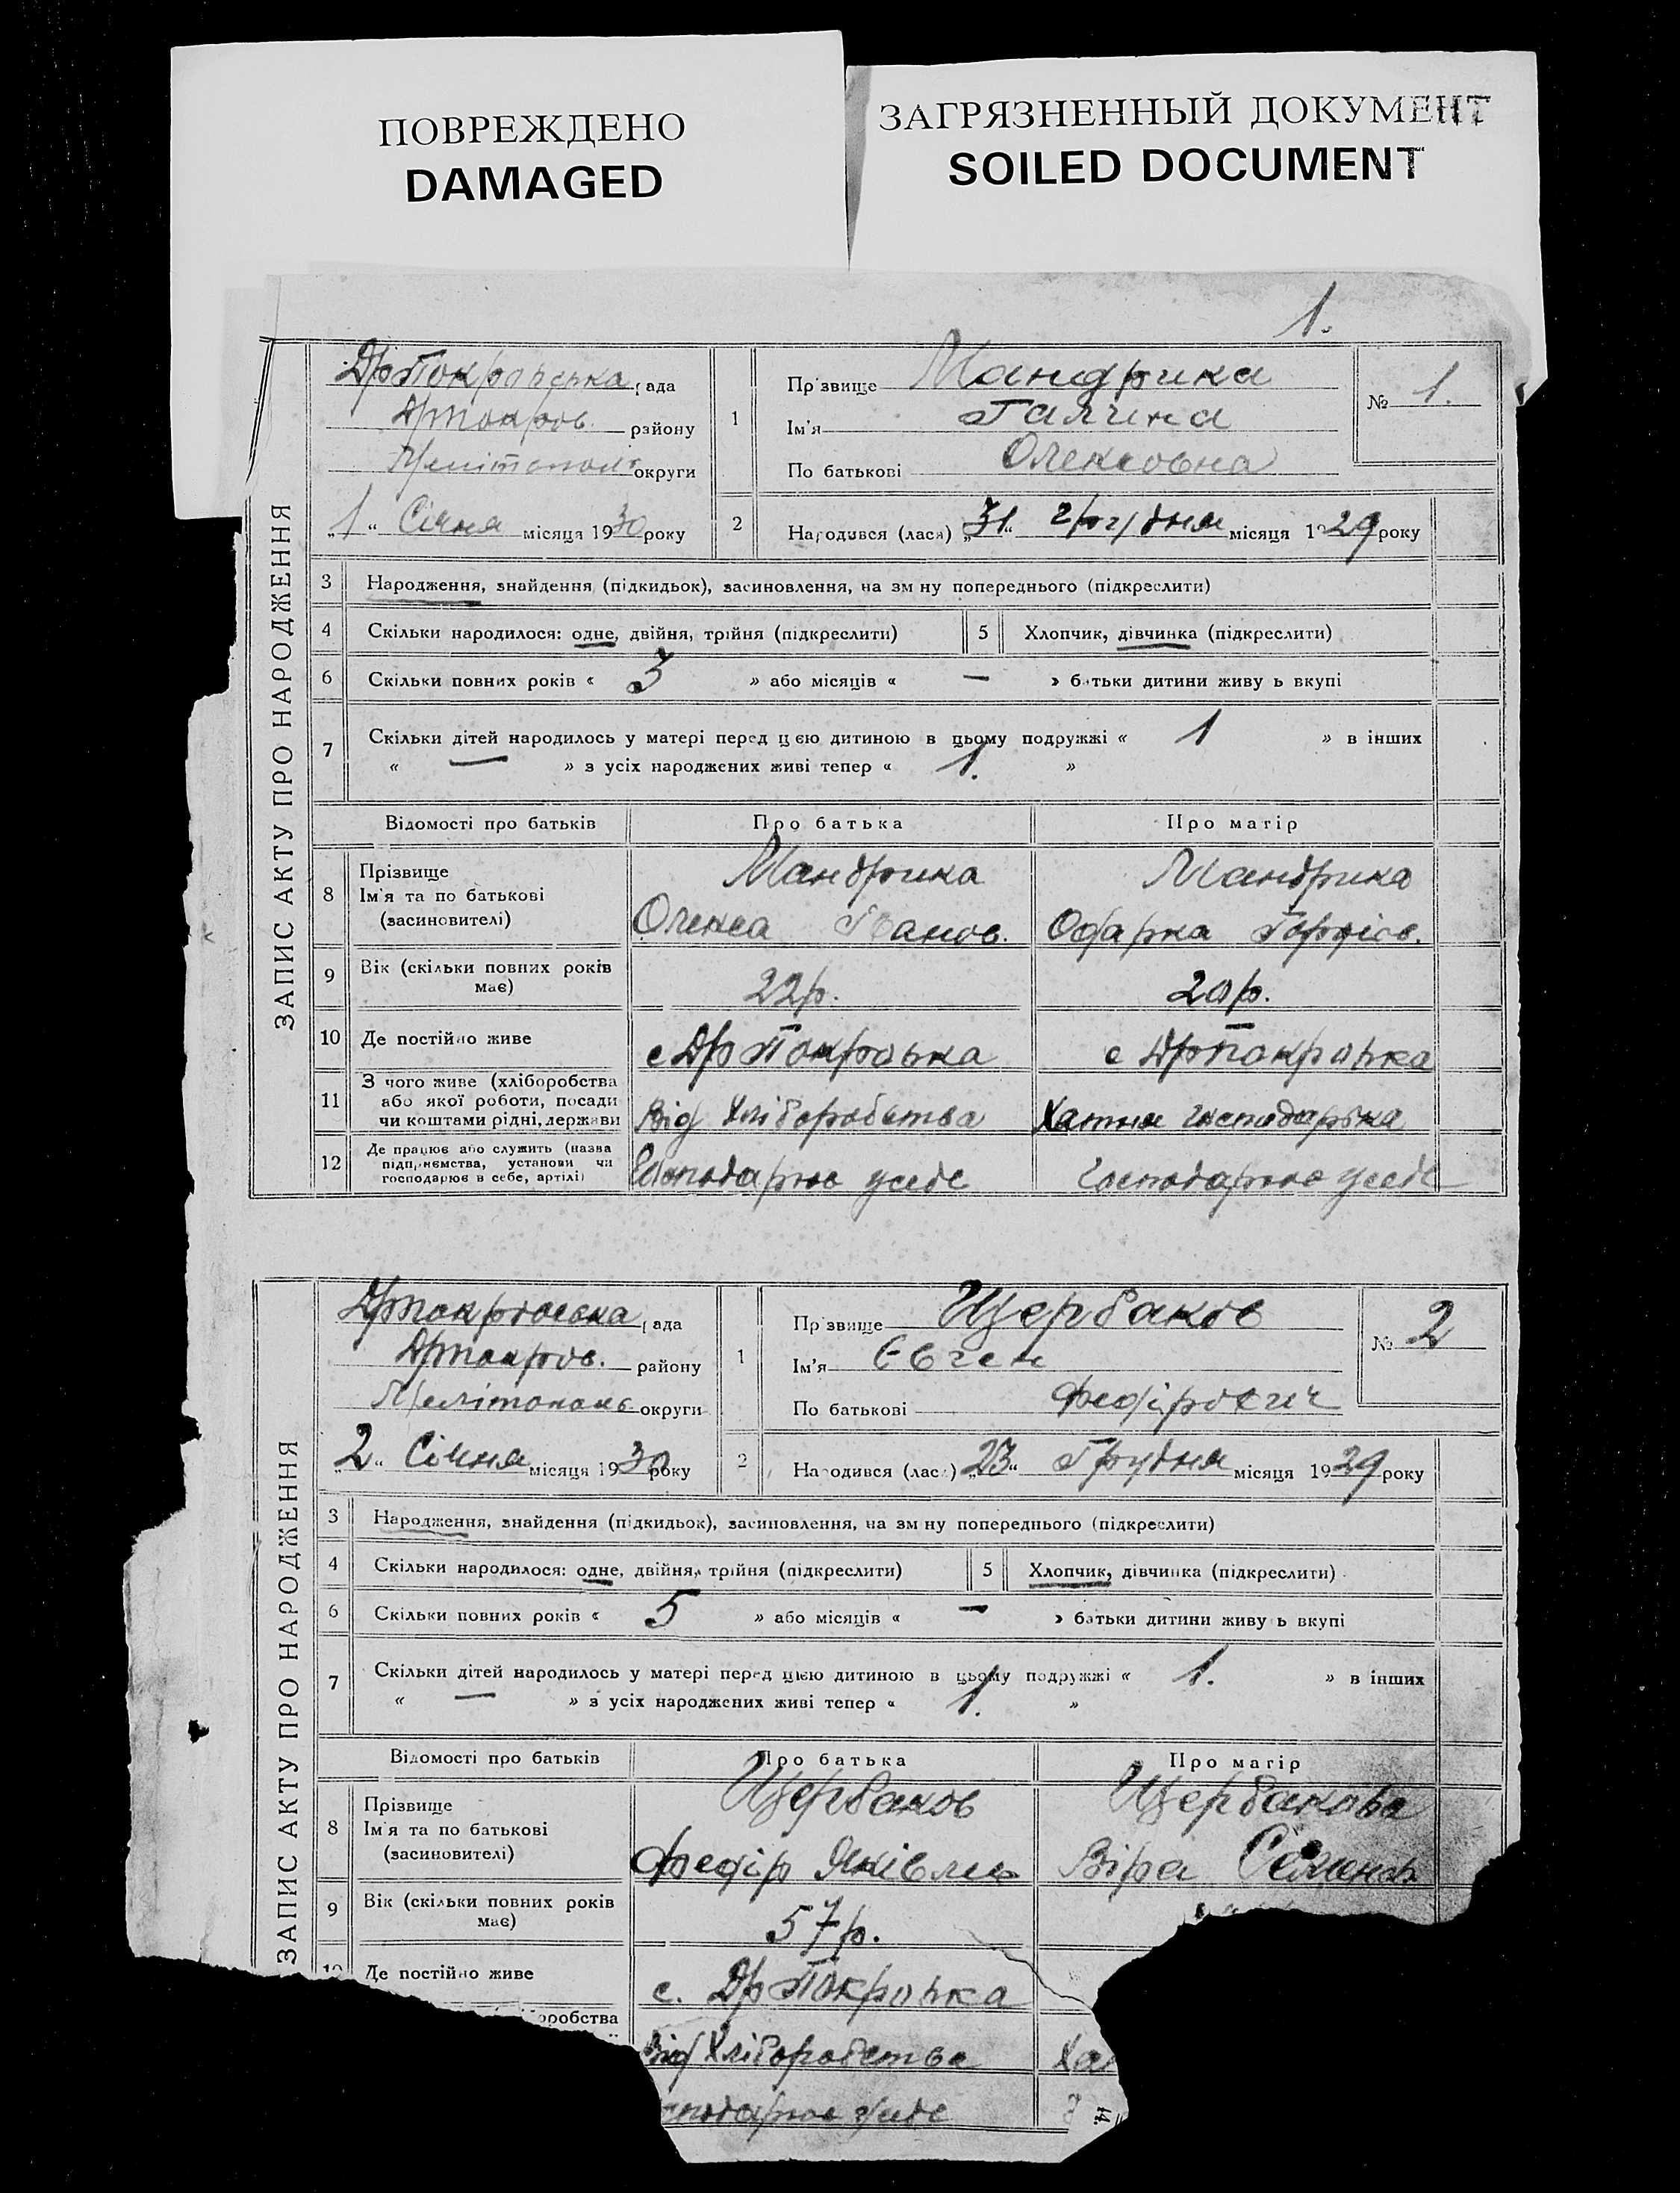 ПОВРЕЖДЕНО
DAMAGED
ЗАГРЯЗНЕННЫЙ ДОКУМЕНТ
SOILED DOCUMENT
1.
ЗАПИС АКТУ ПРО НАРОДЖЕННЯ
рада
Др Покров. району
Мелітополь округи
„1" Січня місяця 1930 року
1
Прізвище Мандрика
Ім'я Галина
По батькові Олексовна
№ 1.
2
Народився (лася) „31" грудня місяця 1929 року
3 Народження, знайдення (підкидьок), засиновлення, на зміну попереднього (підкреслити)
4 Скільки народилося: одне, двійня, трійня (підкреслити)
5 Хлопчик, дівчинка (підкреслити)
6 Скільки повних років « 3 » або місяців « — » батьки дитини живуть вкупі
7 Скільки дітей народилось у матері перед цією дитиною в цьому подружжі « 1 » в інших
« — » з усіх народжених живі тепер « 1. »
Відомості про батьків Про батька Про матір
8 Прізвище
Ім'я та по батькові
(засиновителі)
Мандрика
Олекса Іванов.
Мандрика
Одарка Гордієв.
9 Вік (скільки повних років
має)
22р.
20р.
10 Де постійно живе
с Др Покровка
с Др Покровка
11 З чого живе (хліборобства
або якої роботи, посади
чи коштами рідні, держави
Від Хліборобства
Хатня господарка
12 Де працює або служить (назва
підприємства, установи чи
господарює в себе, артілі)
Господарює у себе
господарює у себе
ЗАПИС АКТУ ПРО НАРОДЖЕННЯ
рада
Др Покров. району
Мелітополь округи
„2" Січня місяця 1930 року
1
Прізвище Щербаков
Ім'я Євген
По батькові Федірович
№ 2
2
Народився (лася) „23" Грудня місяця 1929 року
3 Народження, знайдення (підкидьок), засиновлення, на зміну попереднього (підкреслити)
4 Скільки народилося: одне, двійня, трійня (підкреслити)
5 Хлопчик, дівчинка (підкреслити)
6 Скільки повних років « 5 » або місяців « — » батьки дитини живуть вкупі
7 Скільки дітей народилось у матері перед цією дитиною в цьому подружжі « 1. » в інших
« — » з усіх народжених живі тепер « 1. »
Відомості про батьків Про батька Про матір
8 Прізвище
Ім'я та по батькові
(засиновителі)
Щербаков
Федір Яківлев
Щербакова
Віра Семенов.
9 Вік (скільки повних років
має)
57р.
10 Де постійно живе
с. Др Покровка
оробства
Від Хліборобства
Хат
сподарює у себе
14.